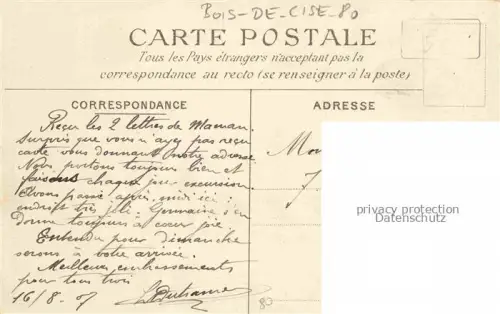 BOIS-DE-CISE-80
CARTE POSTALE
Tous les Pays étrangers n'acceptant pas la
correspondance au recto (se renseigner à la poste)
CORRESPONDANCE
Reçu les 2 lettres de Maman.
Surpris que vous n'ayez pas reçu
carte vous donnant notre adresse
Nous portons toujours bien et
faisons chaque jour excursion
Avons passé après-midi ici :
endroit très joli. Germaine s'en
donne toujours à cœur joie
Entendu pour dimanche
serons à votre arrivée.
Meilleurs embrassements
pour tous trois
16/8-07
80
ADRESSE
privacy protection
Datenschutz